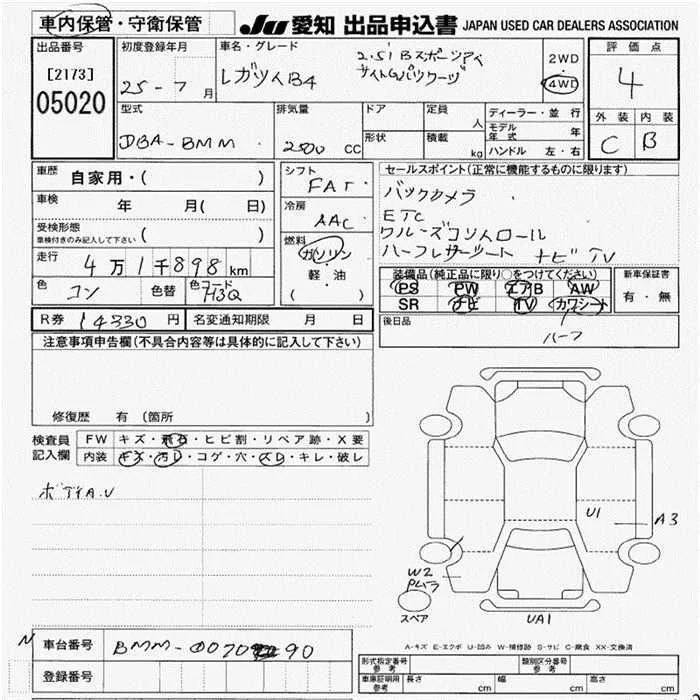 車内保管・守衛保管
JU 愛知 出品申込書 JAPAN USED CAR DEALERS ASSOCIATION
出品番号
[2173]
05020
初度登録年月
25-7月
車名・グレード
レガツィB4
2.5i Bスポーツアイ
サイトGパッケージ
2WD
・
4WD
評価点
4
外装 内装
C B
型式
DBA-BMM
排気量
2500 CC
ドア
形状
定員
人
積載
kg
ディーラー・並行
モデル年式 年
ハンドル 左・右
車歴
自家用・( )
車検 年 月( 日)
受検形態
車検付きのみ記入して下さい ( )
走行 4万1千898km
色 コン 色替 色コード H3Q
シフト
FAT
冷房
AAC
燃料
ガソリン
軽・油
( )
セールスポイント(正常に機能するものに限ります)
バックカメラ
ETC
クルーズコントロール
ハーフレザーシート ナビ TV
装備品(純正品に限り○をつけてください)
PS PW エアB AW
SR ナビ TV カワシート
新車保証書
有・無
R券 14330円 名変通知期限 月 日
後日品
ハーフ
注意事項申告欄(不具合内容等は具体的に記入して下さい)
修復歴 有(箇所 )
検査員記入欄
FW キズ・飛石・ヒビ割・リペア跡・X要
内装 キズ・汚レ・コゲ・穴・スレ・キレ・破レ
ボディA.U
U1
A3
W2
スペア
UA1
A-キズ E-エクボ U-凹み W-補修跡 S-サビ C-腐食 XX-交換済
N
車台番号 BMM-
登録番号
形式指定番号 参考
類別区分番号 参考
車庫証明用 参考 長さ cm 幅 cm 高さ cm